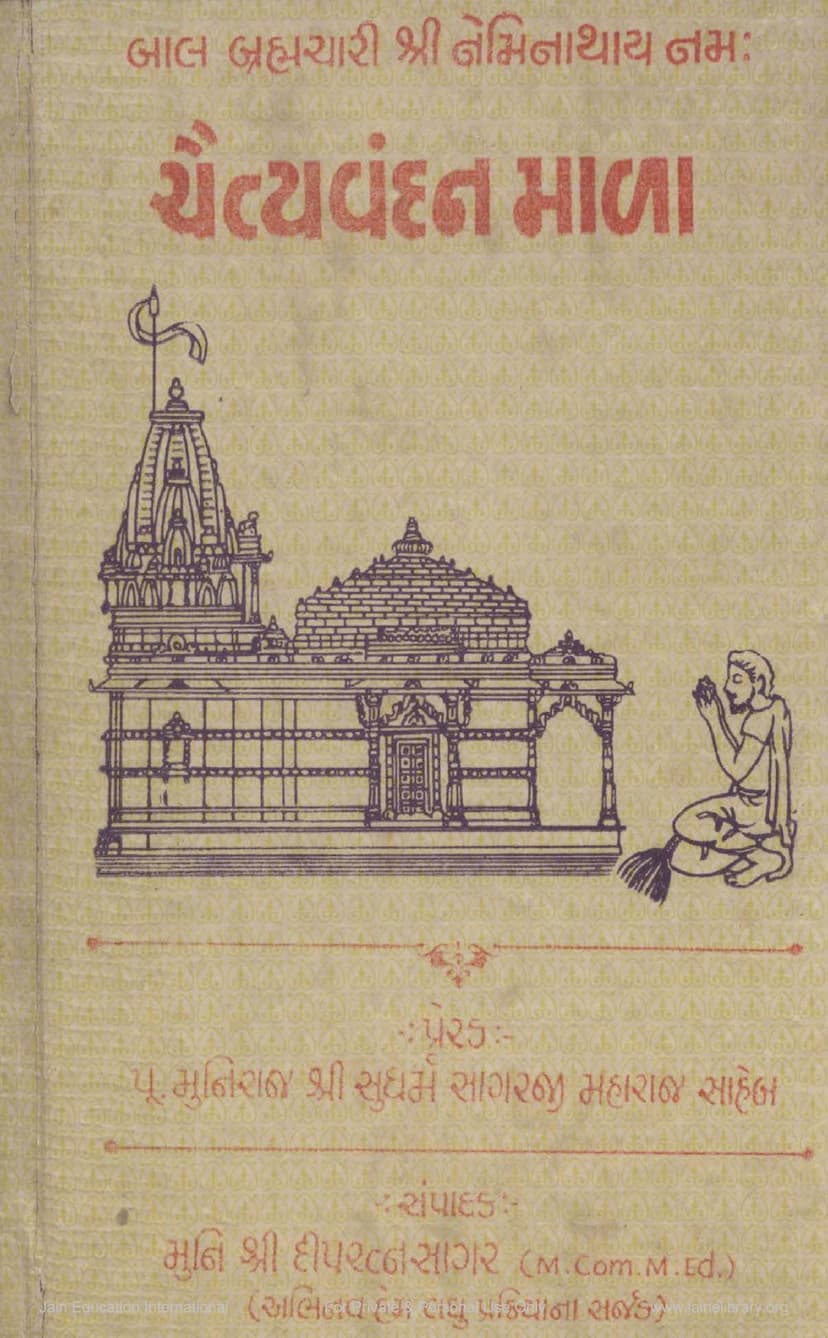 બાલ બ્રહ્મચારી શ્રી નેમિનાથાય નમઃ
ચૈત્યવંદન માળા
-ઃ પ્રેરક ઃ-
પૂ. મુનિરાજ શ્રી સુધર્મ સાગરજી મહારાજ સાહેબ
-ઃ સંપાદક ઃ-
મુનિ શ્રી દીપરત્નસાગર (M.Com.M.Ed.)
(અભિનવ હેમ લઘુ પ્રક્રિયાના સર્જક)
Jain Education International For Private & Personal Use Only www.jainelibrary.org